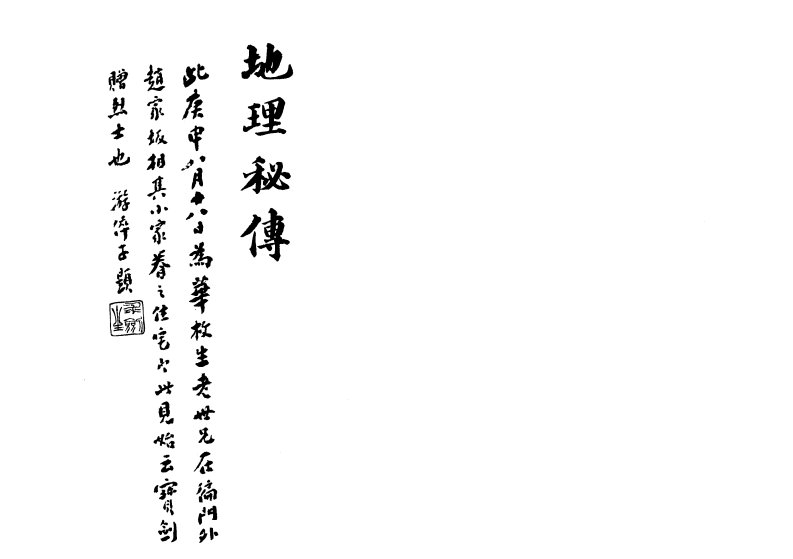 地理秘傳
此庚申八月十八日為華枚生老世兄在偏門外
趙家坂相其小家眷之住宅以此見貽云寶劍
贈烈士也 游儕子題